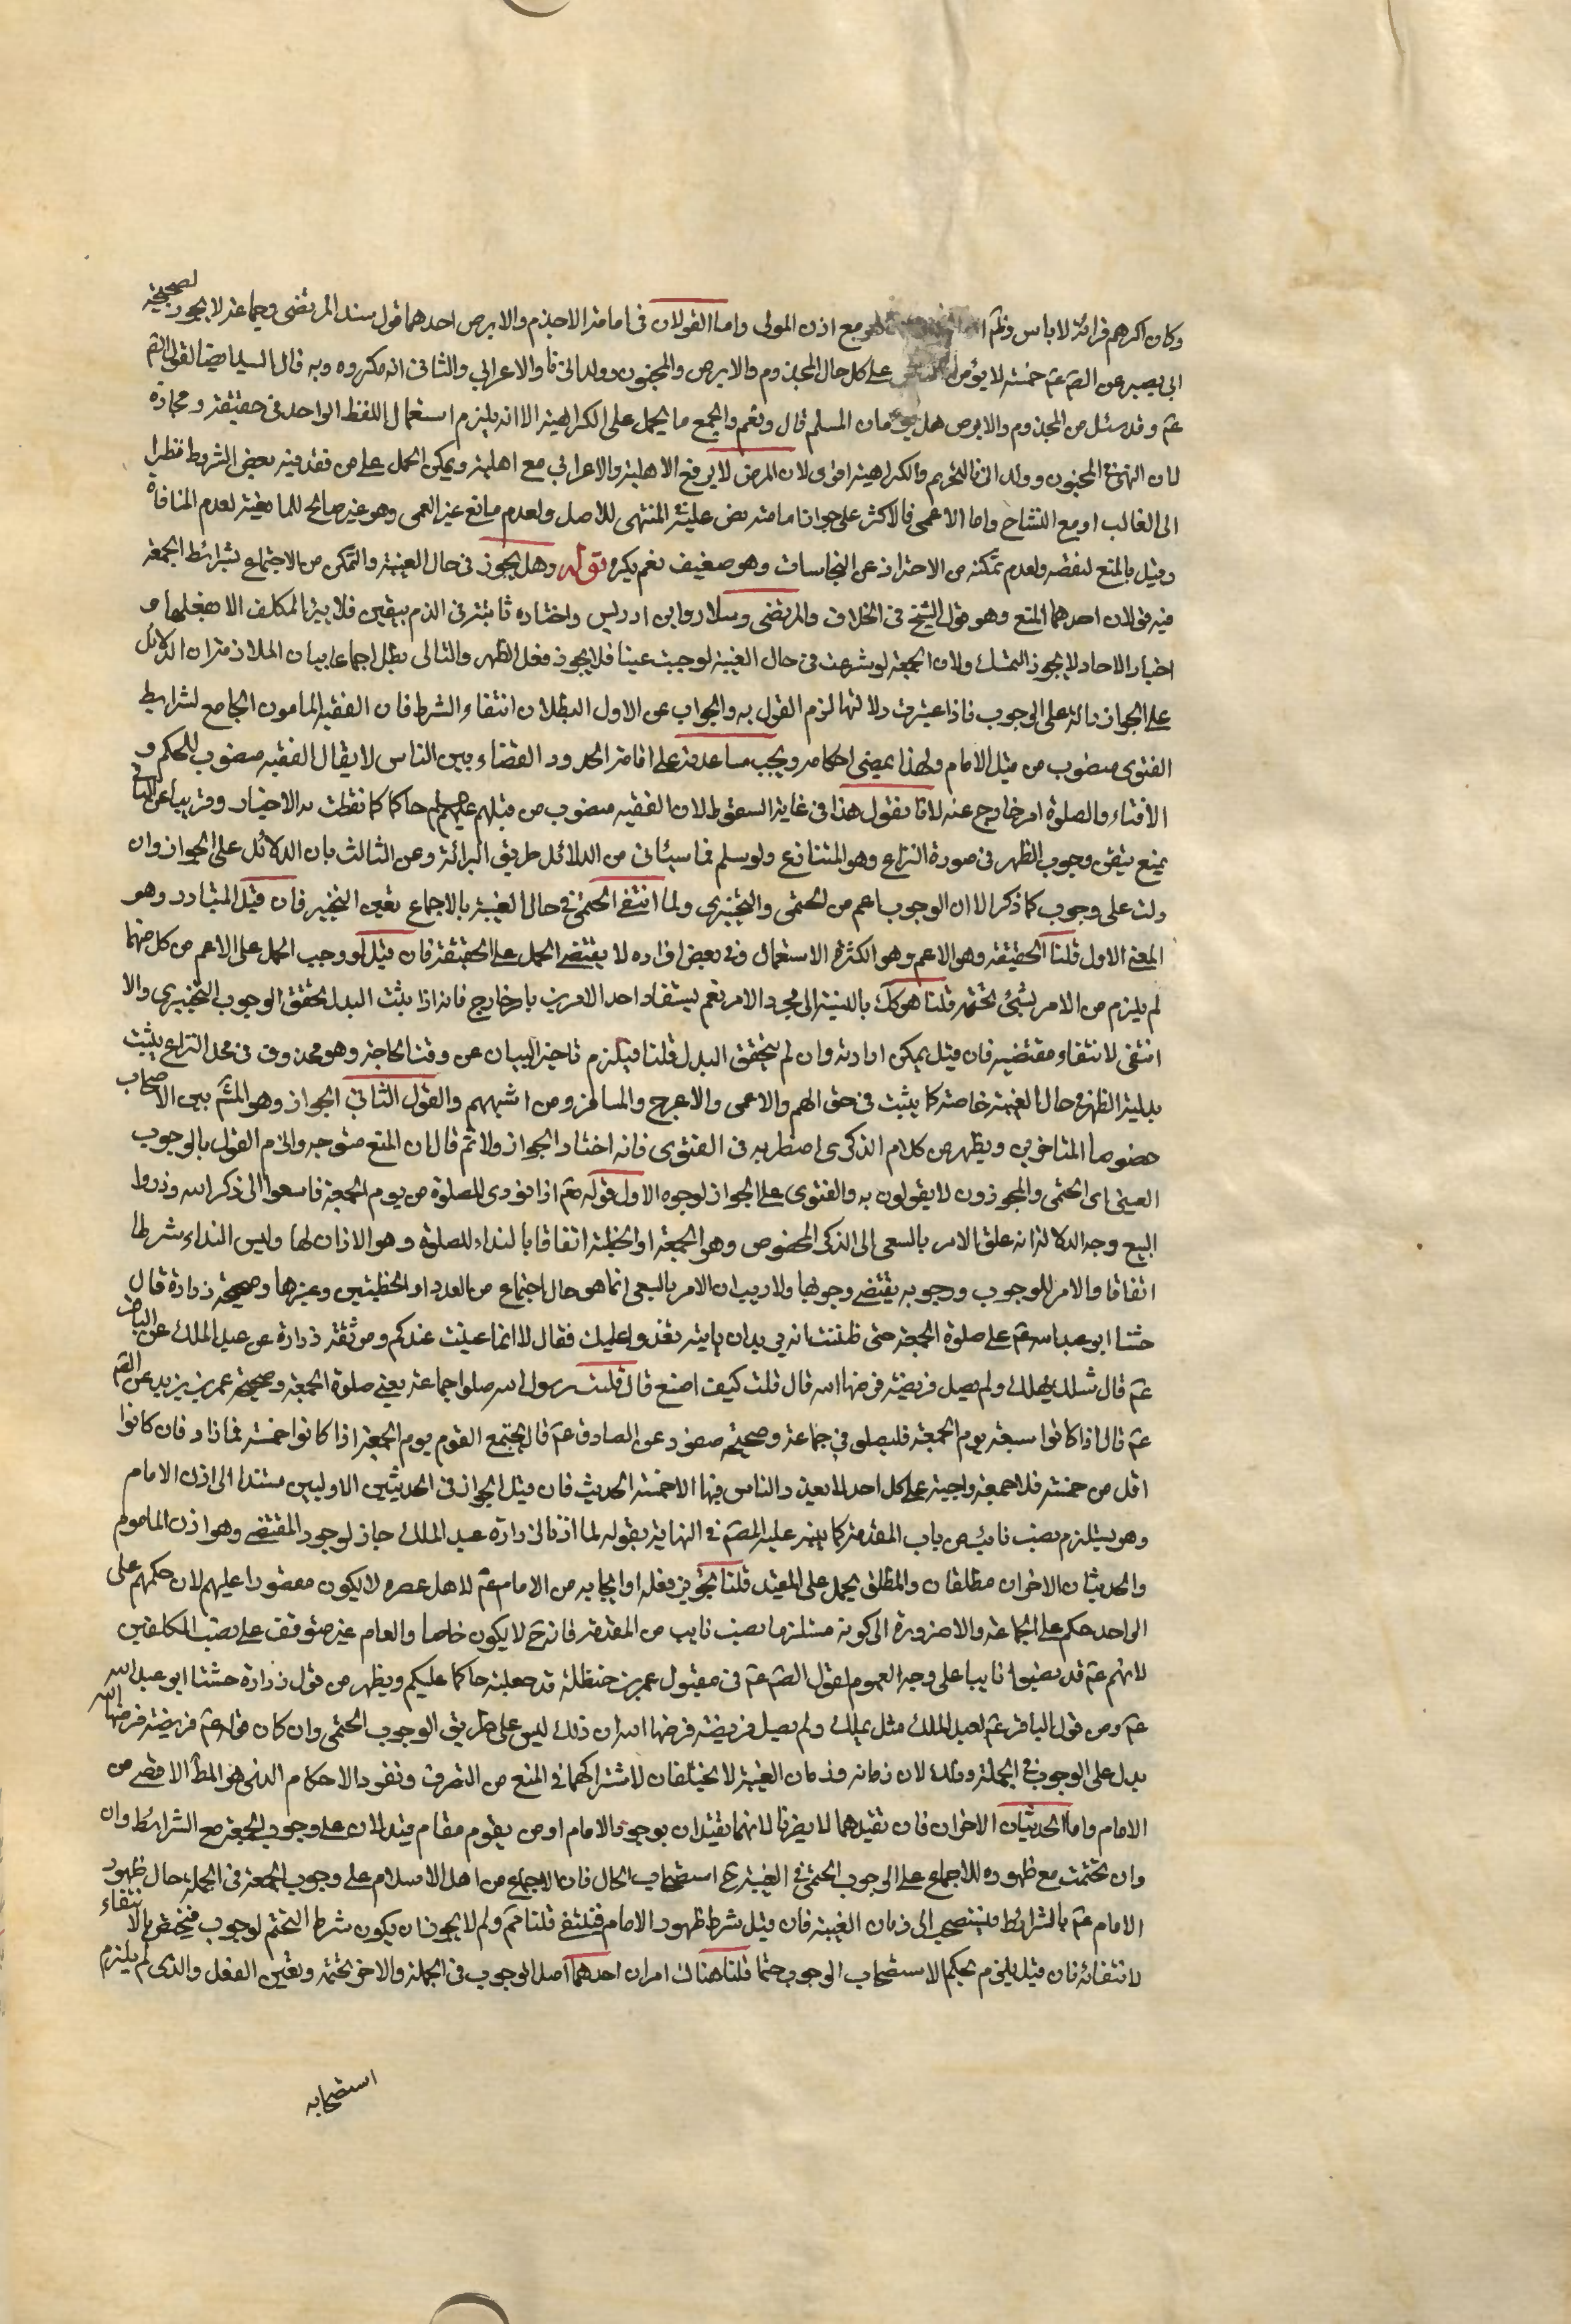 وكان اكرهم قرائة لا باس وثم مع اذن المولى واما القولان فى امامة الاجذم والابرص احدهما قول سند المرتضى وجماعة لا يجوز لصحيحة
ابى بصير عن الصّ عمّ خمسة لا يؤمن على كل حال المجذوم والابرص والمجنون وولد الزنا والاعرابي والثانى انه مكروه وبه قال السيد ايضا لقول الصّ
عمّ وقد سئل من المجذوم والابرص هل يؤمان المسلم قال ونعم والجمع ما يحمل على الكراهية الا انه يلزم استعمال اللفظ الواحد فى حقيقة ومجازه
لان النهى فى المجنون وولد الزنا للتحريم والكراهية اقوى لان المرض لا يرفع الاهلية والاعرابي مع اهلية ويمكن الحمل على من فقد فيه بعض الشرايط نظرا
الى الغالب او مع التشاح واما الاعمى فالاكثر على جواز امامته نص عليه المنتهى للاصل ولعدم مانع غير العمى وهو غير صالح للمانعية لعدم المنافاة
وقيل بالمنع لنقصه ولعدم تمكنه من الاحتراز عن النجاسات وهو ضعيف نعم يكره قوله وهل يجوز فى حال الغيبة والتمكن من الاجتماع بشرائط الجمعة
فيه قولان احدهما المنع وهو قول الشيخ فى الخلاف والمرتضى وسلار وابن ادريس واختاره ثابتة فى الذم بيقين فلا يبرا المكلف الا بفعلها و
اخبار الاحاد لا يجوز التمسك ولان الجمعة لو شرعت فى حال الغيبة لوجبت عينا فلا يجوز فعل الظهر والتالى بطل اجماعا بيان الملازمة ان الدلائل
على الجواز دالة على الوجوب فاذا اعتبرت دلالتها لزم القول به والجواب عن الاول البطلان انتفاء الشرط فان الفقيه المامون الجامع لشرايط
الفتوى منصوب من قبل الامام ولهذا يمضى احكامه ويجب مساعدته على اقامة الحدود القضاء بين الناس لا يقال الفقيه منصوب للحكم و
الافتاء والصلوة امر خارج عنه لانا نقول هذا فى غاية السقوط لان الفقيه منصوب من قبلهم عليهم السلام حاكما كما نطقت به الاخبار وقريبا عن الثانى
يمنع تيقن وجوب الظهر فى صورة النزاع وهو المتنازع ولو سلم فما سيئاتى من الدلائل طريق البرائة وعن الثالث بان الدلائل على الجواز وان
دلت على وجوب كما ذكر الا ان الوجوب اعم من الحتمى والتخييرى ولما انتفى الحتمى فى حال الغيبة بالاجماع تعين التخيير فان قيل المتبادر وهو
المعنى الاول قلنا الحقيقة وهو الاعم وهو الكثرة الاستعمال وفى بعض افراده لا يقتضى الحمل على الحقيقة فان قيل لو وجب الحمل على الاعم من كل منهما
لم يلزم من الامر بشئ تحتمه قلنا هو كك بالنسبة الى مجرد الامر نعم يستفاد احد الامرين بامر خارج فانه اذا يثبت البدل تحقق الوجوب التخييري والا
انتفى لانتفاء مقتضيه فان قيل يمكن ارادته وان لم يتحقق البدل قلنا فيلزم تاخير البيان عن وقت الحاجة وهو محذوف فى محل النزاع يثبت
بدلية الظهر فى حال الغيبة خاصة كما يثبت فى حق الهم والاعمى والاعرج والمسافر ومن اشبههم والقول الثانى الجواز وهو المشهّ بين الاصحاب
خصوصا المتاخرين ويظهر من كلام الذكرى اضطرابه فى الفتوى فانه اختار الجواز ولا ثم قال ان المنع متوجه والزم القول بالوجوب
العينى اى الحتمى والمجوزون لا يقولون به والفتوى على الجواز لوجوه الاول قوله تعّ اذا نودى للصلوة من يوم الجمعة فاسعوا الى ذكر الله وذروا
البيع وجه الدلالة انه علق الامر بالسعى الى الذكر المخصوص وهو الجمعة او الخطبة اتفاقا بالنداء للصلوة وهو الاذان لها وليس النداء شرطا
اتفاقا والامر للوجوب ووجوبه يقتضى وجوبها ولا ريب ان الامر بالسعى انما هو حال اجتماع من العدد او الخطبتين وغيرها وصحيحة زرارة قال
حثنا ابو عبد الله عمّ على صلوة الجمعة حتى ظننت انه يريد ان ياتيه نغدوا عليك فقال لا انما عنيت عندكم وموثقة زرارة عن عبد الملك عن الباقر
عمّ قال مثلك يهلك ولم يصل فريضة فرضها الله قال قلت كيف اصنع قال قلت رسول الله صلوا جماعة يعنى صلوة الجمعة وصحيحة عمر بن يزيد عن الصّ
عمّ قال اذا كانوا سبعة يوم الجمعة فليصلوا فى جماعة وصحيحة منصور عن الصادق عمّ قال يجتمع القوم يوم الجمعة اذا كانوا خمسة فما زاد فان كانوا
اقل من خمسة فلا جمعة واجبة على كل احد لا يعذر الناس فيها الا خمسة الحديث فان قيل الجواز فى الحديثين الاولين مستندا الى اذن الامام
وهو يستلزم نصب نائبه من باب المقدمة كما نبه عليه المصّ فى النهاية بقوله لما اذنا لزرارة عبد الملك جاز لوجود المقتضى وهو اذن الماموم
والحديثان الاخران مطلقان والمطلق يحمل على المقيد قلنا تجويز فعله او ايجابه من الامام عمّ لاهل عصره لا يكون مقصورا عليهم لان حكمهم على
الواحد حكم على الجماعة والاضرورة الى كونه مستلزما نصب نايب من المقدمة فانه حّ لا يكون خاصا والعام غير متوقف على نصب المكلفين
لانهم عمّ قد نصبوا نايبا على وجه العموم لقول الصّ عمّ فى مقبول عمر بن حنظلة قد جعلته حاكما عليكم ويظهر من قول زرارة حثنا ابو عبد الله
عمّ ومن قول الباقر عمّ لعبد الملك مثلك يهلك ولم يصل فريضة فرضها الله ان ذلك ليس على طريق الوجوب الحتمى وان كان قوله عمّ فريضة فرضها الله
يدل على الوجوب فى الجملة وذلك لان زمانه وزمان الغيبة لا يختلفان لاشتراكهما فى المنع من التصرف ونفوذ الاحكام الذى هو المطّ الاقصى من
الامام واما الحديثان الاخران فان تقيدهما لا يضرنا لانهما تقيدان بوجود الامام او من يقوم مقام قيد لان على وجوب الجمعة مع الشرائط وان
وان تحتمت مع ظهوره للاجماع على الوجوب الحتمى فى الغيبة عّ استصحاب الحال فان الاجماع من اهل الاسلام على وجوب الجمعة فى الجملة حال ظهور
الامام عمّ بالشرائط فيستصحب الى زمان الغيبة فان قيل شرط ظهور الامام فتنتفى قلنا مّمّ ولم لا يجوز ان يكون شرط التحتم لوجوب فيختص بالانتفاء
لانتفائه فان قيل يلزم بحكم الاستصحاب الوجوب حتما قلنا هناك امران احدهما اصل الوجوب فى الجملة والاخر تحتمه وتعين الفعل والذى لم يلزم
استصحابه